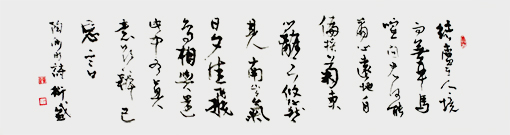 結廬在人境
而無車馬
喧問君何能
爾心遠地自
偏採菊東
籬下悠然
見南山氣
日夕佳飛
鳥相與還
此中有真
意欲辯已
忘言
陶淵明詩